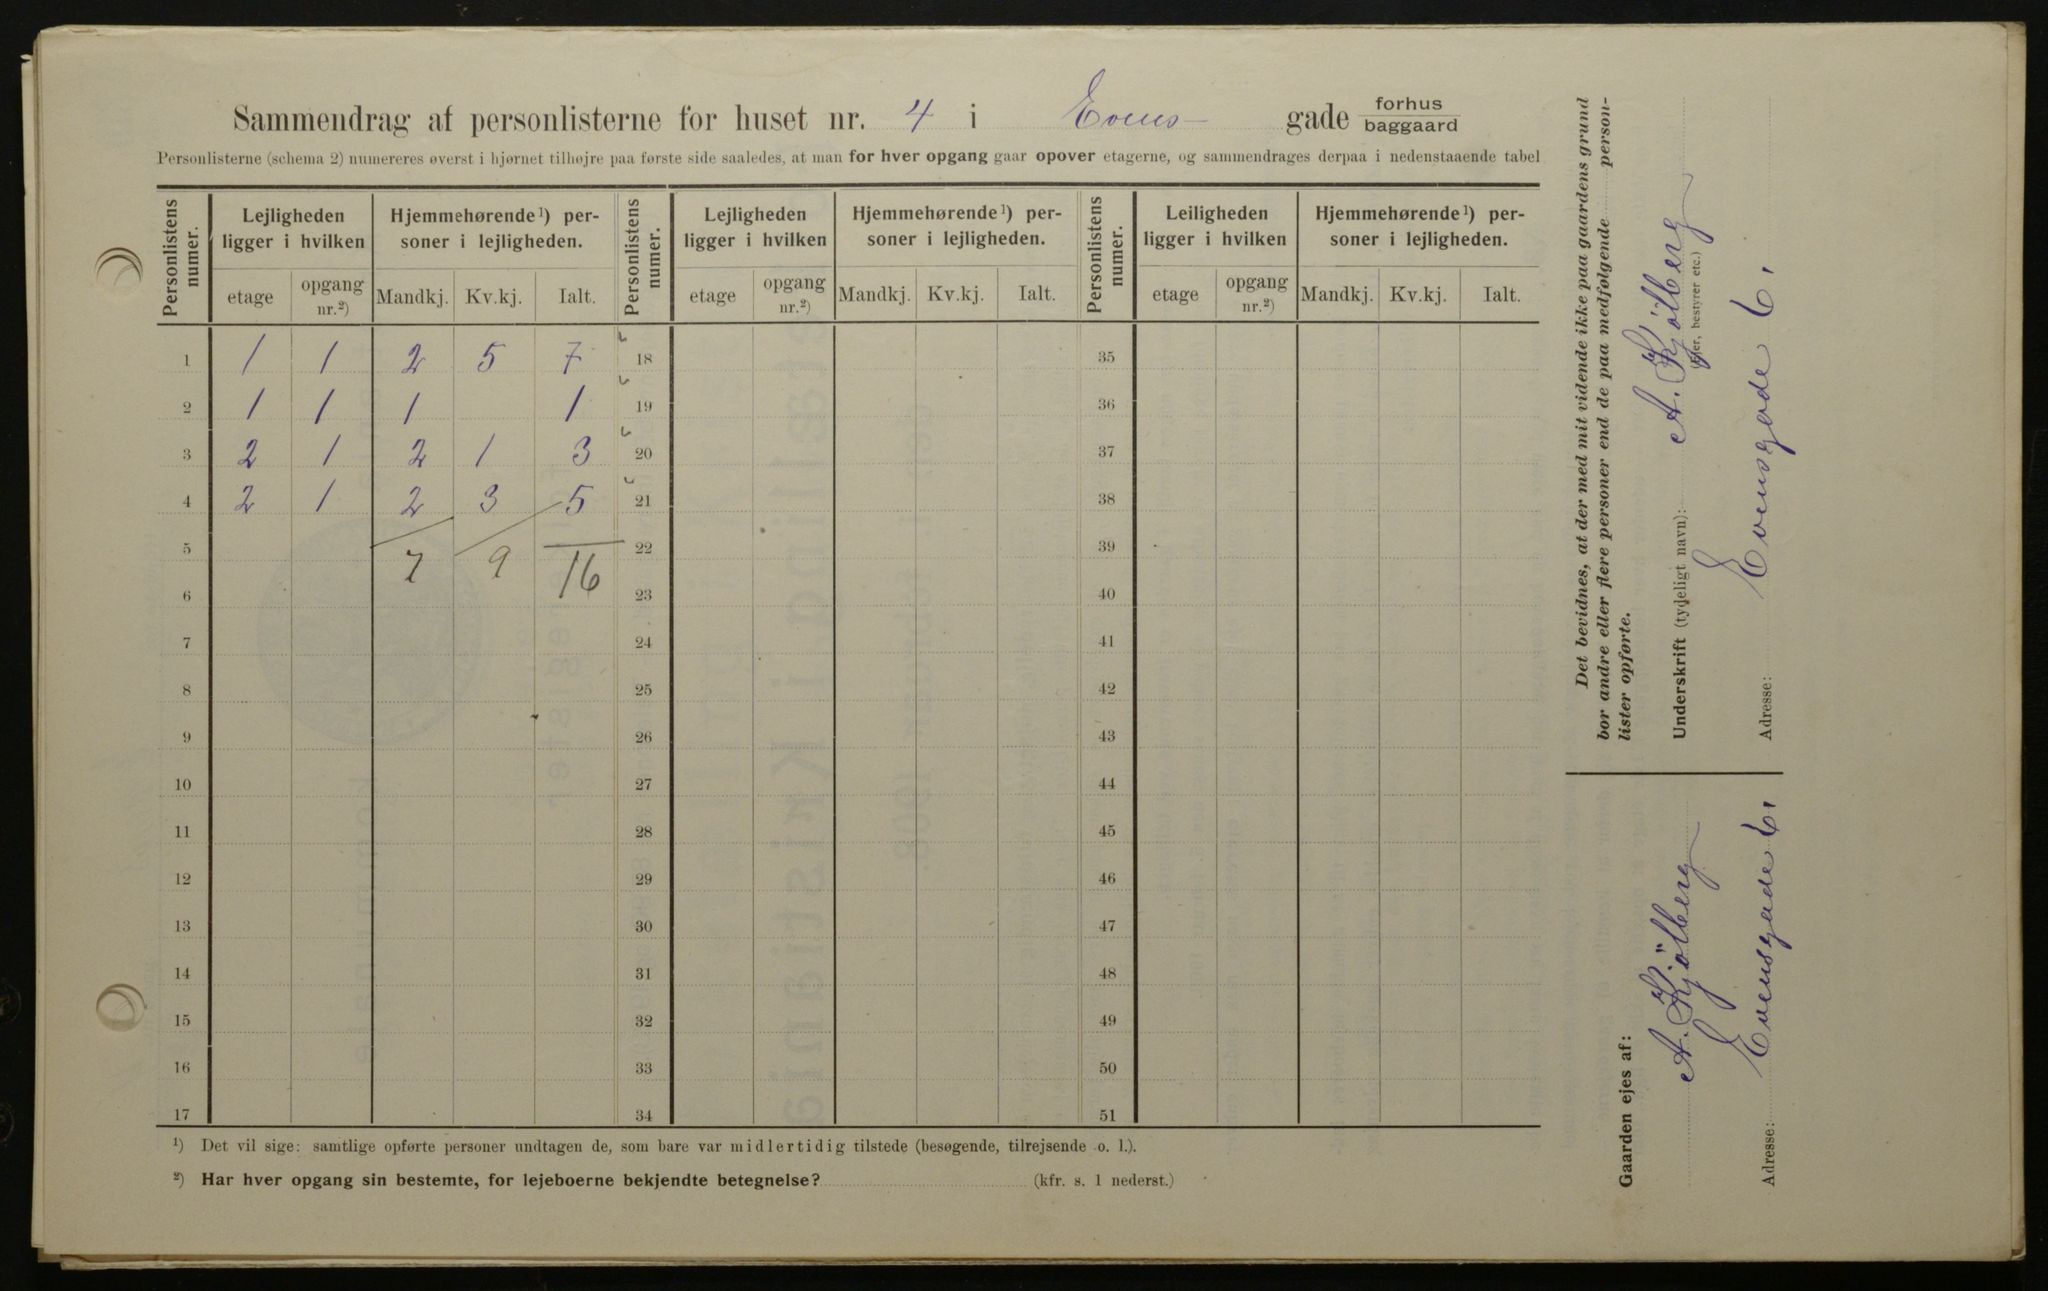 Sammendrag af personlisterne for huset nr. 4 i Evens gade forhus baggaard
Personlisterne (schema 2) numereres øverst i hjørnet tilhøjre paa første side saaledes, at man for hver opgang gaar opover etagerne, og sammendrages derpaa i nedenstaaende tabel
Personlistens numer. Lejligheden ligger i hvilken Hjemmehørende ¹) personer i lejligheden. Personlistens numer. Lejligheden ligger i hvilken Hjemmehørende ¹) personer i lejligheden. Personlistens numer. Leiligheden ligger i hvilken Hjemmehørende ¹) personer i lejligheden.
etage opgang nr.²) Mandkj. Kv.kj. Ialt. etage opgang nr.²) Mandkj. Kv.kj. Ialt. etage opgang nr.²) Mandkj. Kv.kj. Ialt.
1 1 1 2 5 7 18 35
2 1 1 1 1 19 36
3 2 1 2 1 3 20 37
4 2 1 2 3 5 21 38
5 7 9 16 22 39
6 23 40
7 24 41
8 25 42
9 26 43
10 27 44
11 28 45
12 29 46
13 30 47
14 31 48
15 32 49
16 33 50
17 34 51
¹) Det vil sige: samtlige opførte personer undtagen de, som bare var midlertidig tilstede (besøgende, tilrejsende o. l.).
²) Har hver opgang sin bestemte, for lejeboerne bekjendte betegnelse? (kfr. s. 1 nederst.)
Det bevidnes, at der med mit vidende ikke paa gaardens grund
bor andre eller flere personer end de paa medfølgende person-
lister opførte.
Underskrift (tydeligt navn): A. Kjölberg
(Ejer, bestyrer etc.)
Adresse: Evensgade 6,
Gaarden ejes af:
A. Kjölberg
Adresse: Evensgade 6,